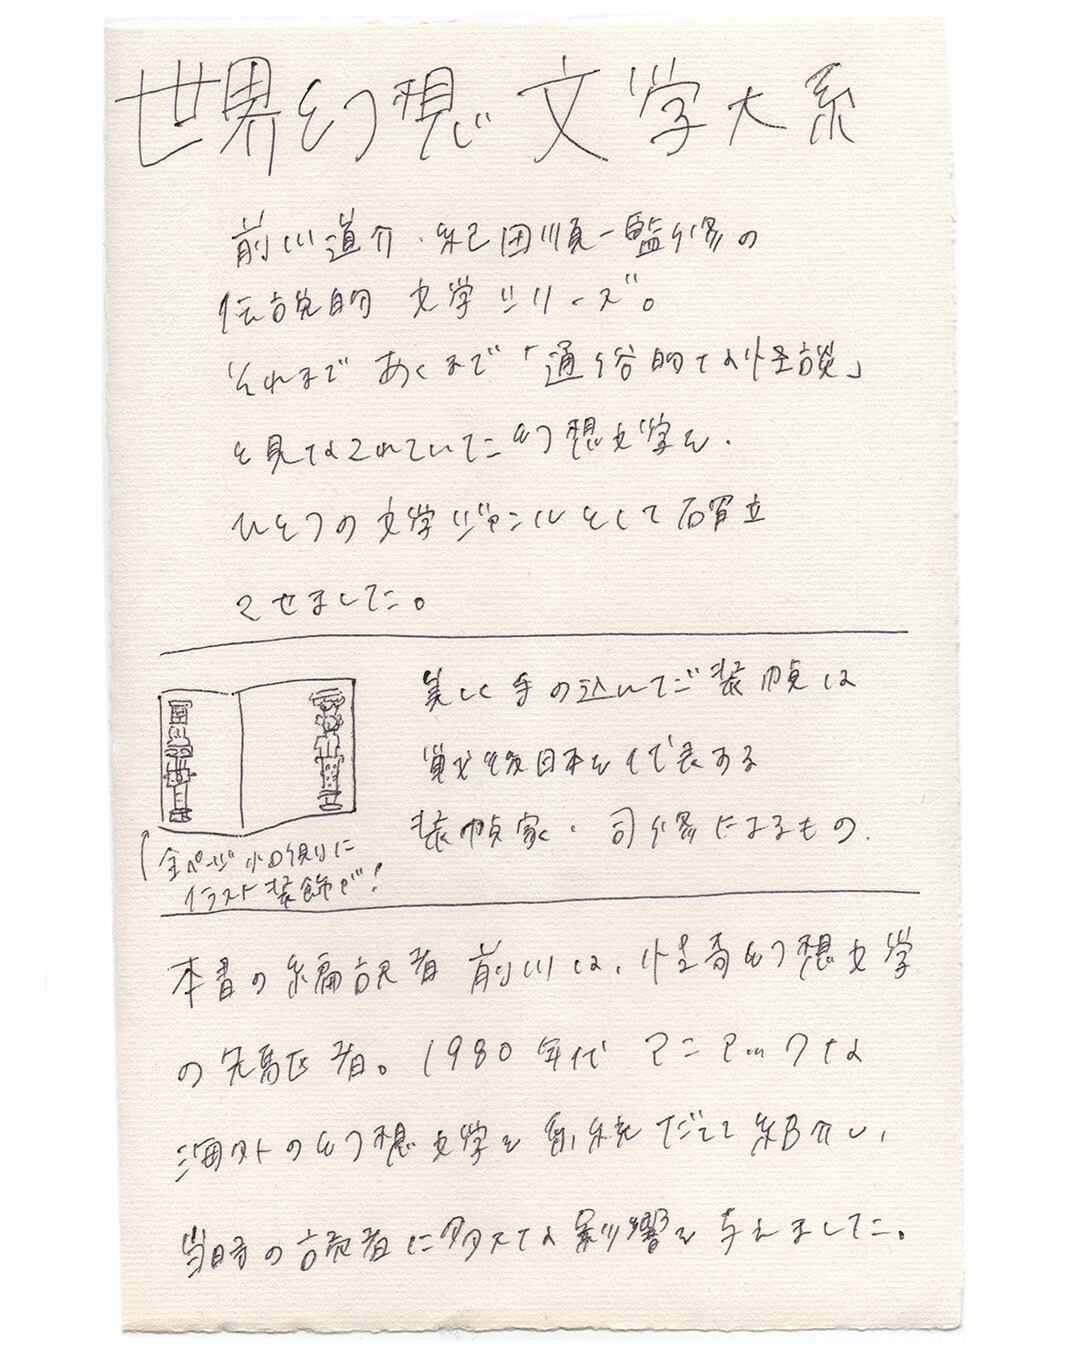 世界幻想文学大系
前川道介・紀田順一監修の
伝説的文学シリーズ。
それまであくまで「通俗的な怪談」
と見なされていた幻想文学を、
ひとつの文学ジャンルとして確立
させました。
美しく手の込んだ装幀は
戦後日本を代表する
装幀家・司修によるもの。
全ページ小口側に
イラスト装飾が!
本書の編訳者前川は、怪奇幻想文学
の先駆者。1980年代マニアックな
海外の幻想文学を系統だてて紹介し、
当時の読者に多大な影響を与えました。